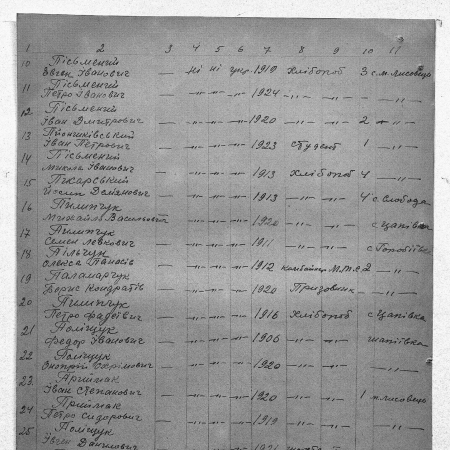 1 2 3 4 5 6 7 8 9 10 11
10 Пісьменний
Євген Іванович — ні ні укр. 1919 Хлібороб 3 с.м. Лисовець
11 Пісьменний
Петро Іванович — -"- -"- -"- 1924 -"- — — -"-
12 Пісьменний
Іван Дмитрович — -"- -"- -"- 1920 -"- — 2 -"-
13
Іван Петрович — -"- -"- -"- 1923 студент 1 -"-
14 Пісьменний
Микола Іванович — -"- -"- -"- 1913 Хлібороб 4 -"-
15 Пікарський
Йосип Дем'янович — -"- -"- -"- 1913 -"- — 4 с. Слобода
16 Пилипчук
Михайло Васильович — -"- -"- -"- 1920 -"- — — с Цапівка
17 Пилипчук
Семен Левкович — -"- -"- -"- 1911 -"- — —
18 Пільчук
Олекса Панасів — -"- -"- -"- 1912 комбайнер М.Т.С. 2 -"-
19 Паламарчук
Борис Кондратів — -"- -"- -"- 1920 Призовник — — -"-
20 Пилипчук
Петро Фадєївич — -"- -"- -"- 1916 Хлібороб — с Цапівка
21 Поліщук
Федор Іванович — -"- -"- -"- 1906 -"- — —
22 Поліщук
— -"- -"- -"- 1920 -"- — — -"-
23
Іван Степанович — -"- -"- -"- 1920 -"- — 1 м. Лисовець
24
Петро Сидорович — -"- -"- -"- 1919 -"- — — -"-
25 Поліщук
Євген Данилович